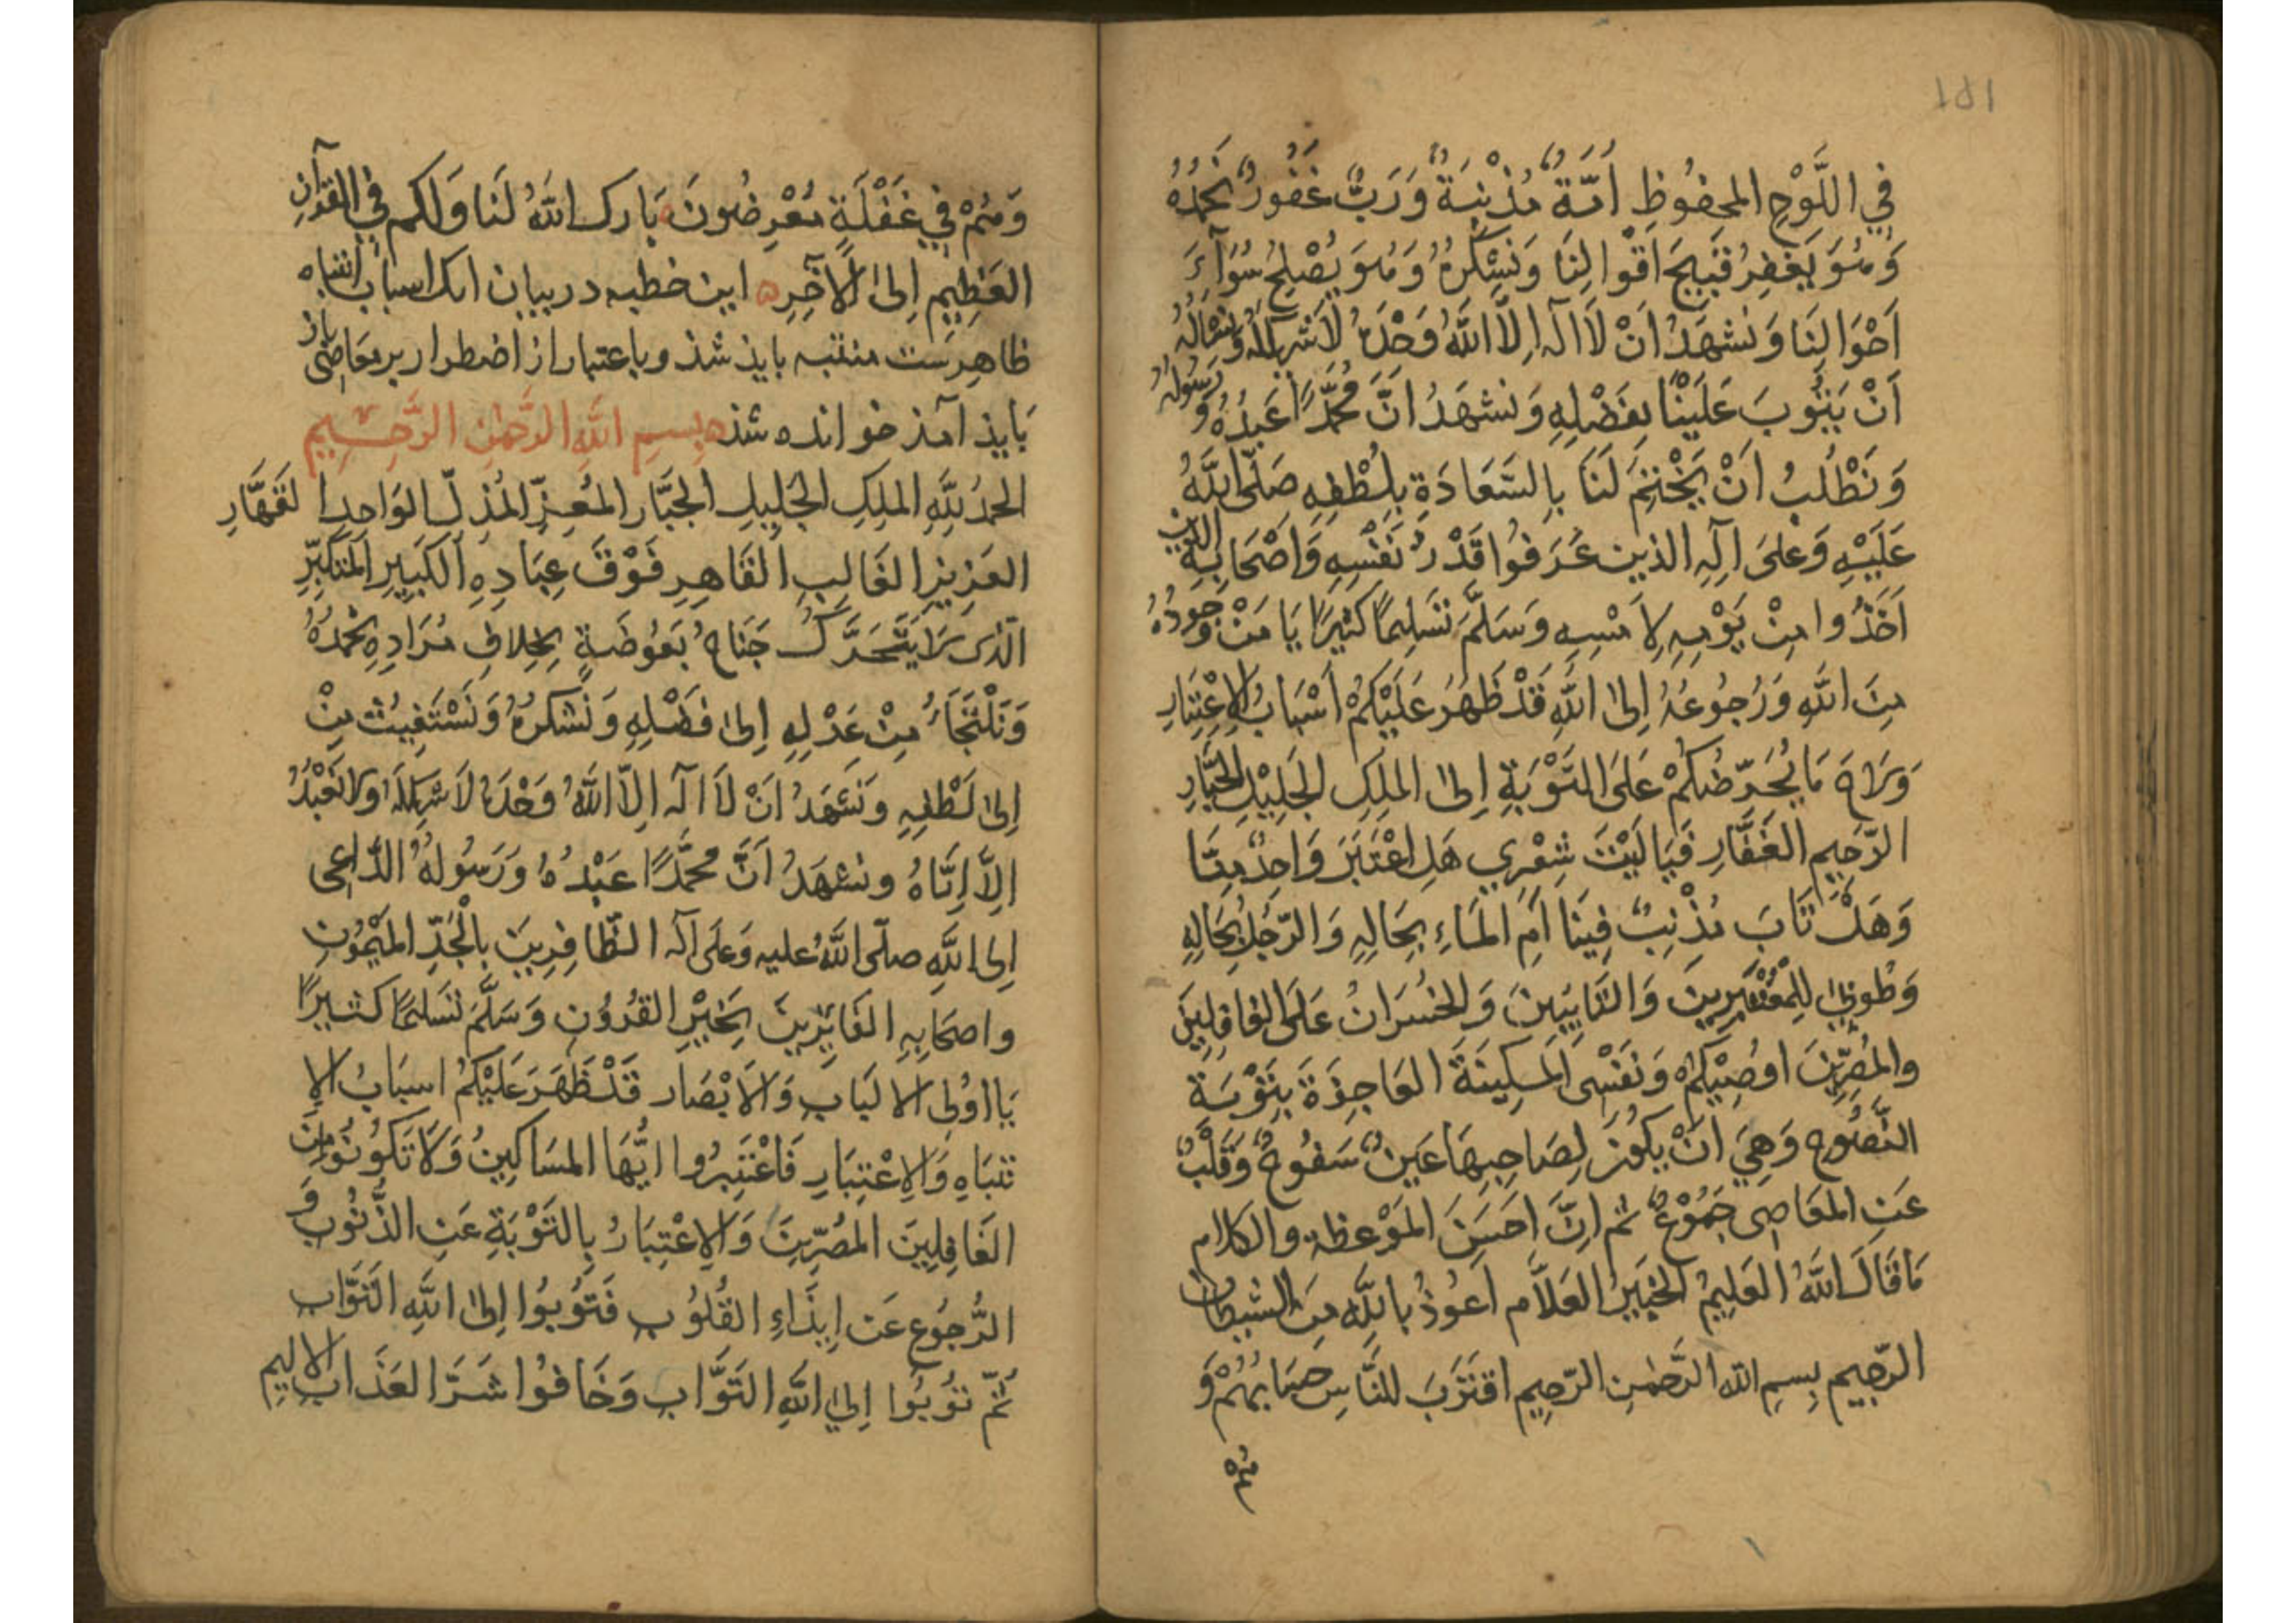 ١٥١
فِي اللَّوْحِ المحفُوظِ اُمَّةٌ مُذْنِبَةٌ وَرَبٌّ غَفُورٌ نَحْمَدُهُ
وَهُوَ يَغْفِرُ قَبِيحَ اَقْوَالِنَا وَنَشْكُرُهُ وَهُوَ يُصْلِحُ سُوَآءَ
اَحْوَالِنَا وَنَشهَدُ اَنْ لَا اِلَهَ اِلَّا اللَّهُ وَحْدَهُ لَا شَرِيكَ لَهُ وَنَسْاَلُهُ
اَنْ يَتُوبَ عَلَيْنَا بِفَضْلِهِ وَنشهَدُ اَنَّ مُحَمَّدًا عَبْدُهُ وَرَسُولُهُ
وَنَطْلُبُ اَنْ يَخْتِمَ لَنَا بِالسَّعَادَةِ بِلُطْفِهِ صَلَّى اللَّهُ
عَلَيْهِ وَعَلَى اٰلِهِ الذين عَرَفُوا قَدْرَ نَفْسِهِ وَاَصْحَابِهِ الذين
اَخَذُوا مِنْ يَوْمِهِ لِاَمْسِهِ وَسَلَّمَ تَسْلِيمًا كثيرًا يَا مَنْ وُجُودُهُ
مِنَ اللَّهِ وَرُجُوعُهُ اِلَى اللَّهِ قَدْ ظَهَرَ عَلَيْكُمْ اَسْبَابُ الاِعْتِبَارِ
وَلَاحَ مَا يُحَرِّضُكُمْ عَلَى التَّوْبَةِ اِلَى المَلِكِ الجَلِيْلِ الجَبَّارِ
الرَّحِيمِ الغَفَّارِ فَيَا لَيْتَ شِعْرِي هَلِ اعْتَبَرَ وَاحِدٌ مِنَّا
وَهَلْ تَابَ مُذْنِبٌ فِينَا اَمِ المَاءِ بِحَالِهِ وَالرَّجُلُ بِحَالِهِ
وَطُوبَى لِلْمُعْتَبِرِينَ وَالتَّايِبِينَ وَالخُسْرَانُ عَلَى الغَافِلِينَ
والمُصِرِّينَ اُوصِيْكُمْ وَنَفْسِى المِسْكِينَةَ العَاجِزَةَ بِتَوْبَةِ
النَّصُوحِ وَهِيَ اَنْ يَكُونَ لِصَاحِبِهَا عَينٌ سَفُوحٌ وَقَلْبٌ
عَنِ المَعَاصِى جَمُوْحٌ ثم اِنَّ اَحْسَنَ المَوْعظة والكلام
مَا قَالَ اللَّهُ العَلِيمُ الخَبِيرُ العَلَّام اَعُوذُ بالله مِنَ الشيطان
الرَّجِيم بِسمِ الله الرَّحمٰنِ الرَّحِيمِ اقتَرَبَ لِلنَّاسِ حِسَابُهُمْ وَ
هُمْ
وَهُمْ فِي غَفْلَةٍ مُعْرِضُونَ بَارك اللَّهُ لَنَا وَلكم فِي القرآنِ
العَظِيمِ اِلىٰ الآخِرِه اين خطبه در بيان انك اسباب انتباه
ظاهِرست متنبه بايذ شذ وباعتبار از اضطرار بر معَاصى باز
بَايذ آمذ خوانده شذ بِسمِ اللَّهِ الرَّحمٰنِ الرَّحِيمِ
الحمدُ لِلَّهِ المَلِكِ الجَلِيلِ الجَبَّارِ المُعِزِّ المُذِلِّ الوَاحِدِ القَهَّارِ
العَزِيزِ الغَالِبِ القَاهِرِ فَوْقَ عِبَادِهِ الكَبِيرِ المُتَكَبِّرِ
الّذى لَا يَتَحَرَّكُ جَنَاحُ بَعُوضَةٍ بِخِلافِ مُرَادِهِ نَحْمَدُهُ
وَنَلْتَجَأُ مِنْ عَدْلِهِ اِلىٰ فَضْلِهِ وَنَشكرُهُ وَنَسْتَغِيثُ مِنْ
اِلىٰ لُطْفِهِ وَنَشهَدُ اَنْ لَا اِلَهَ اِلَّا اللَّهُ وَحْدَهُ لَا شَرِيكَ لَهُ وَلَا نَعْبُدُ
اِلَّا اِيَّاهُ ونشهَدُ اَنَّ مُحَمَّدًا عَبْدُهُ وَرَسُولُهُ الدَّاعِى
اِلى اللَّهِ صلّى اللَّهُ عليه وَعَلَى آله الظَّافِرِينَ بِالْجَدِّ المَيْمُونِ
واصحَابِهِ الفَائِزِينَ بِخَيْرِ القُرُونِ وَسَلَّمَ تَسْلِيمًا كثيرًا
يَا اُولِى الالبَابِ وَالاَبْصَار قَدْ ظَهَرَ عَلَيْكُمْ اسبَابُ الاِ
نتبَاهِ وَالاِعْتِبَارِ فَاعْتَبِرُوا ايُّهَا المسَاكِينُ وَلَا تَكُونُوا مِنَ
الغَافِلِينَ المُصِرِّينَ وَالاِعْتِبَارُ بِالتَوْبَةِ عَنِ الذُّنُوبِ وَ
الرُّجُوع عَن اِيذَاءِ القُلُوبِ فَتُوبُوا اِلىٰ اللَّهِ التَوَّابِ
ثُمَّ تُوبُوا اِلى اللَّهِ التَوَّابِ وَخَافُوا شَرَّ العَذَابِ الاليمِ